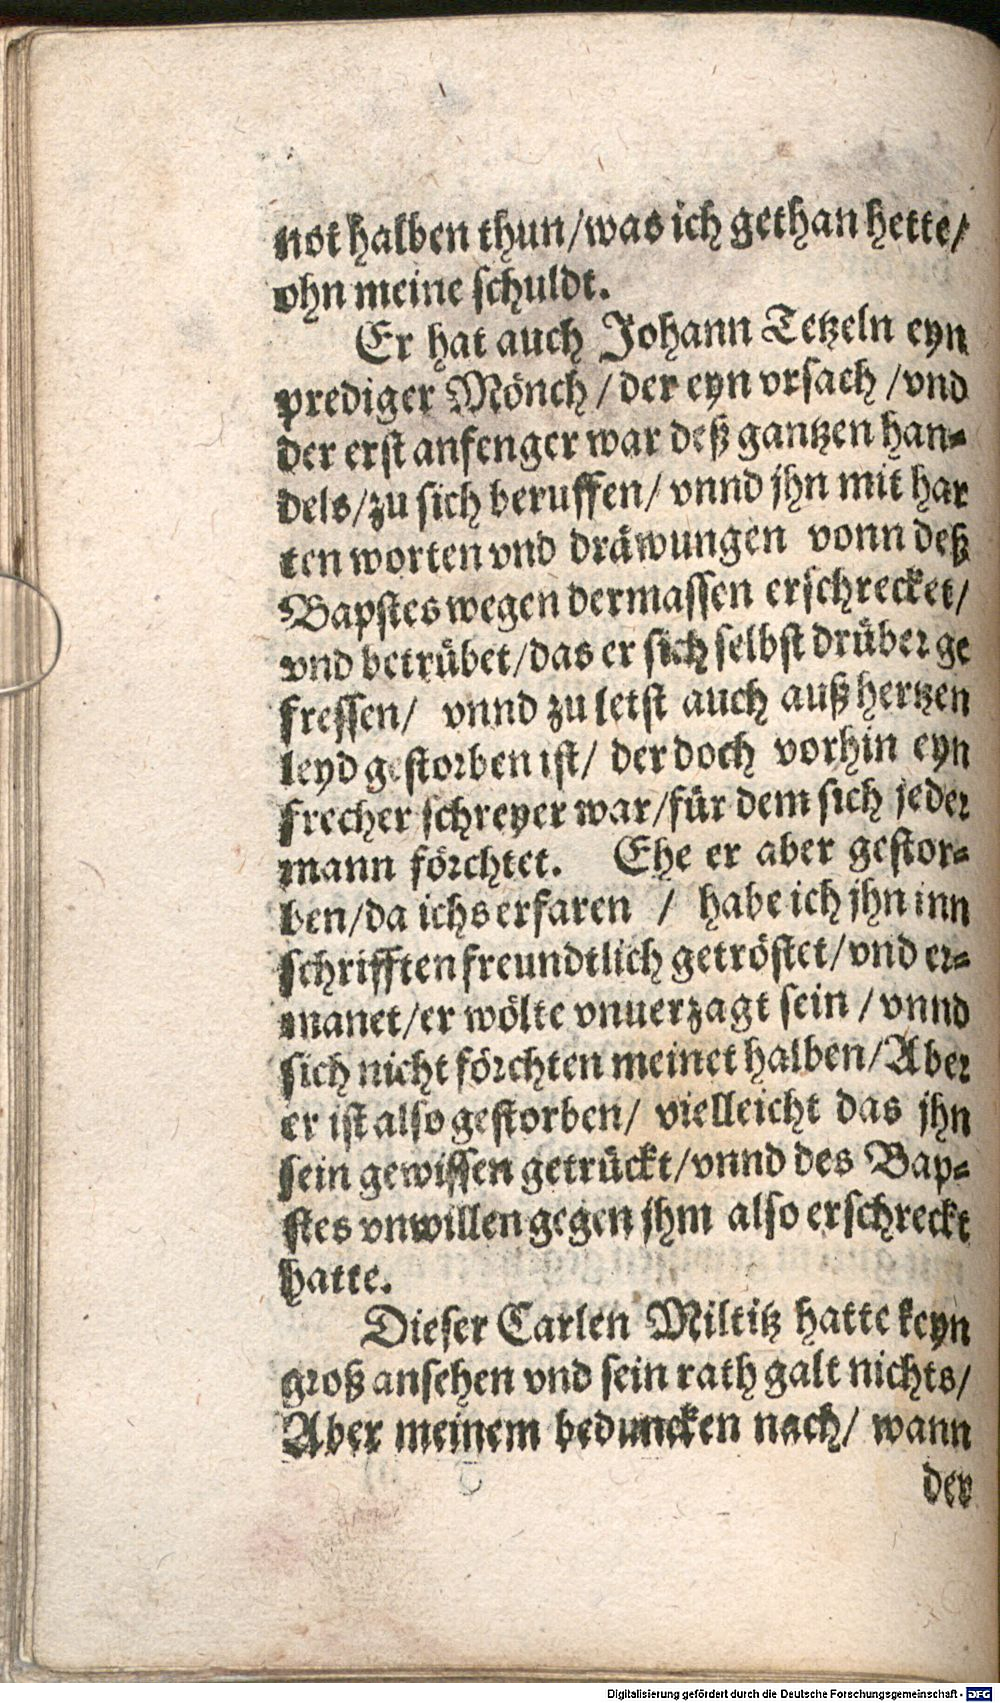 not halben thun/was ich gethan hette/
ohn meine schuldt.
Er hat auch Johann Tetzeln eyn
prediger Mönch/ der eyn vrsach /vnd
der erst anfenger war deß gantzen han-
dels/zu sich beruffen/ vnnd jhn mit har
ten worten vnd dräwungen vonn deß
Bapstes wegen dermassen erschrecket/
vnd betrübet/das er sich selbst drüber ge
fressen/ vnnd zu letst auch auß hertzen
leyd gestorben ist/ der doch vorhin eyn
frecher schreyer war/für dem sich jeder
mann förchtet. Ehe er aber gestor-
ben/da ichs erfaren / habe ich jhn inn
schrifften freundtlich getröstet/vnd er-
manet/er wölte vnuerzagt sein /vnnd
sich nicht förchten meinet halben/Aber
er ist also gestorben/ vielleicht das jhn
sein gewissen getrückt/vnnd des Bap-
stes vnwillen gegen jhm also erschreckt
hatte.
Dieser Carlen Miltitz hatte keyn
groß ansehen vnd sein rath galt nichts/
Aber meinem beduncken nach/ wann
der
Digitalisierung gefördert durch die Deutsche Forschungsgemeinschaft - DFG